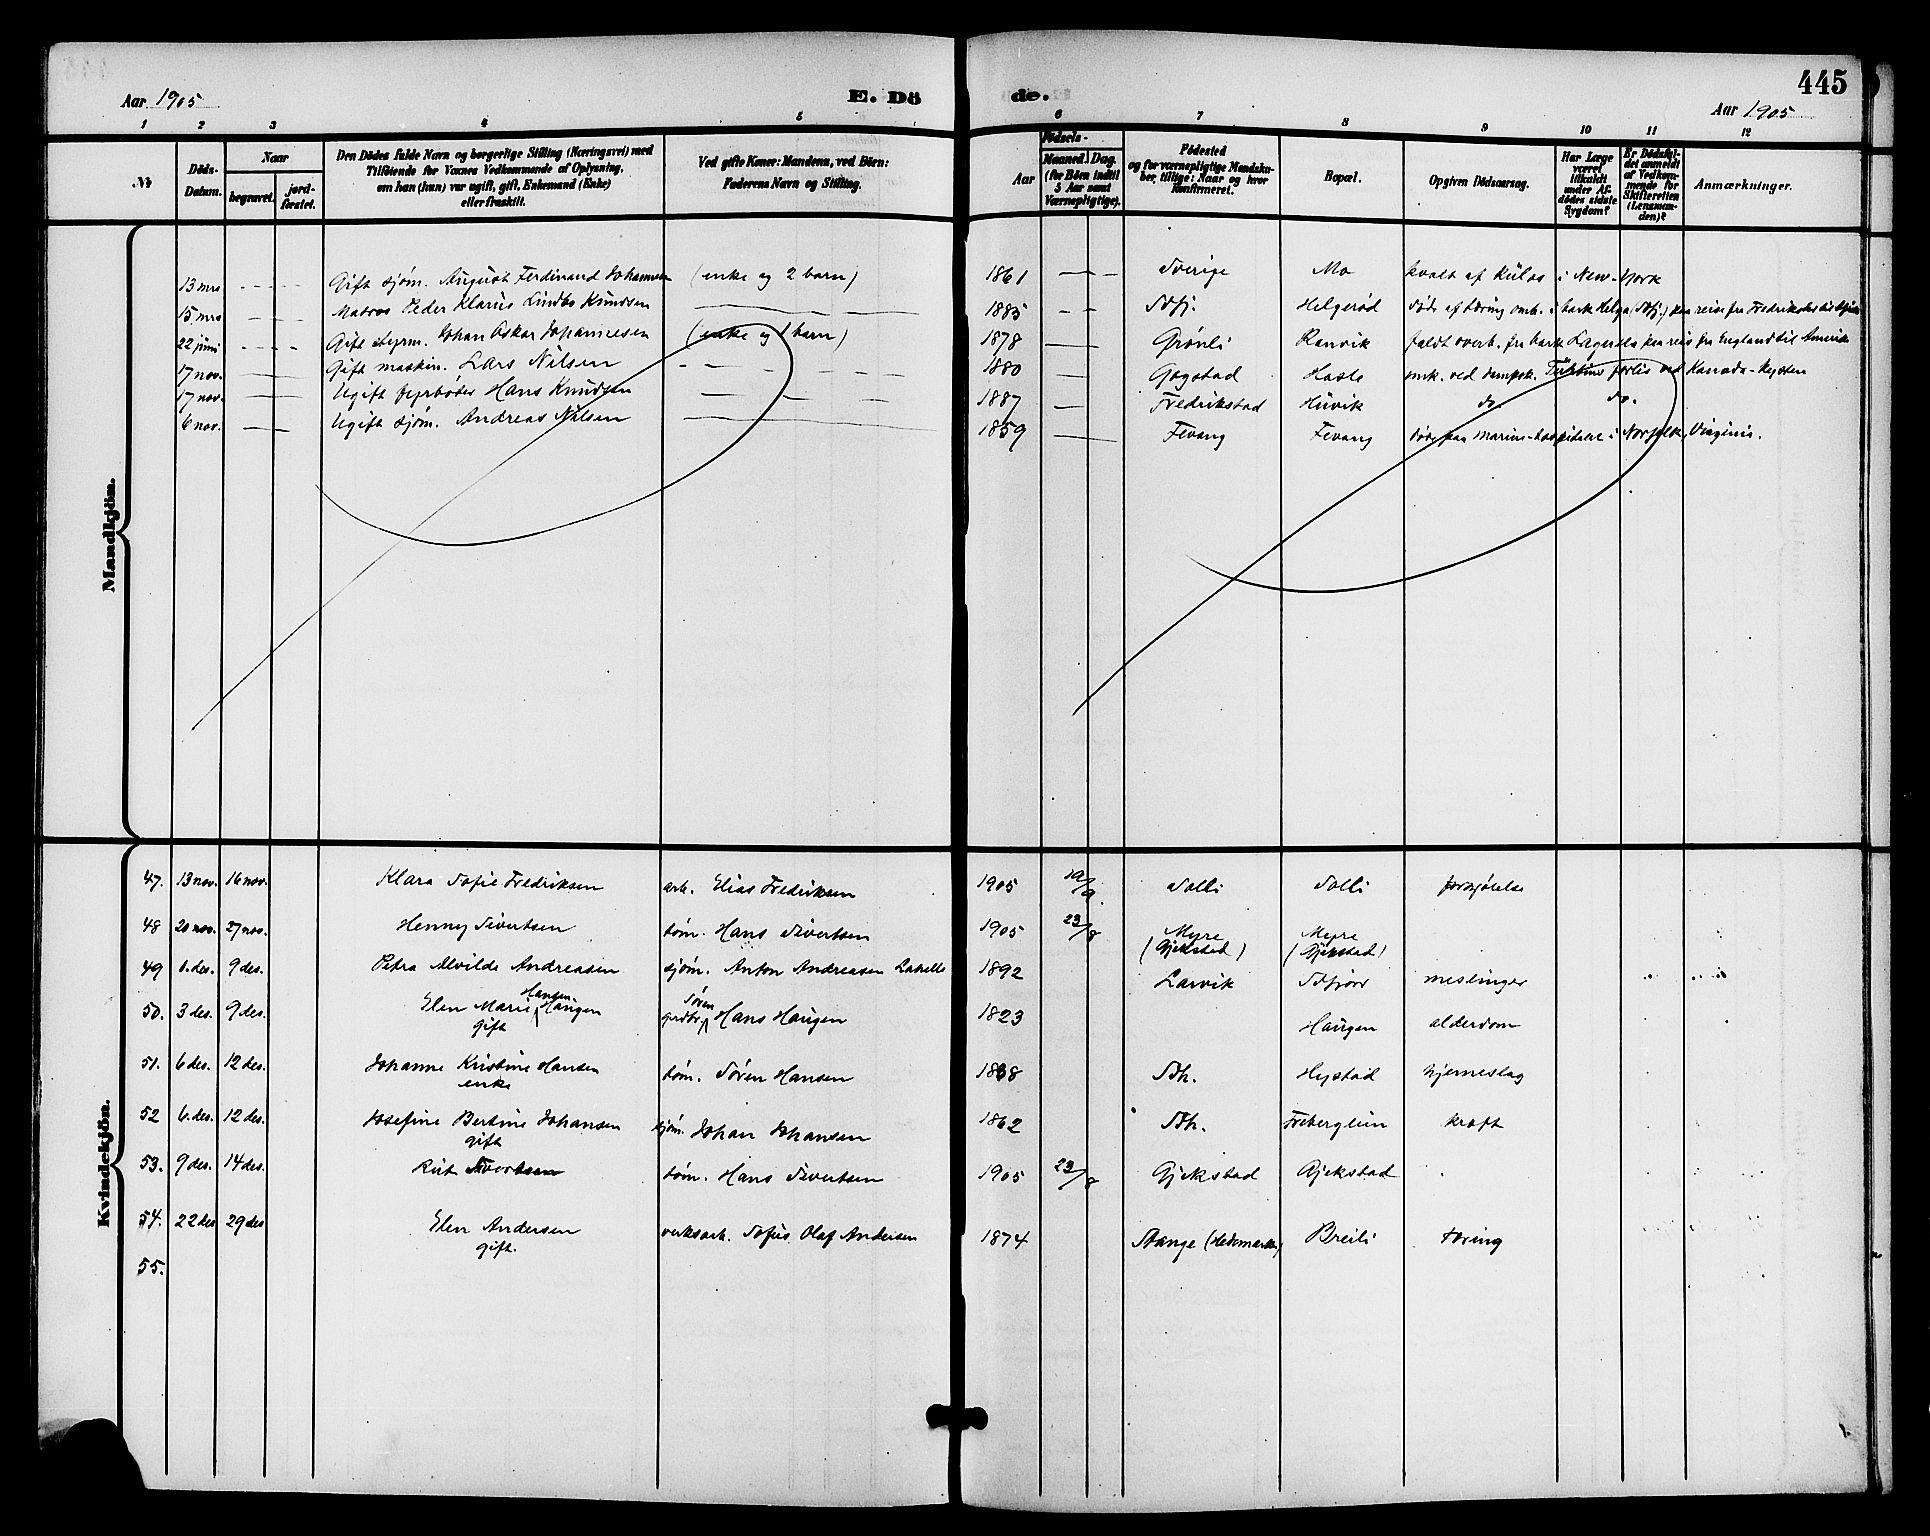 445
Aar 1905
E. Dö
de.
Aar 1905
1 2 3 4 5 6 7 8 9 10 11 12
№
Döds-Datum.
Naar
begravet.
jord-fæstet.
Den Dödes fulde Navn og borgerlige Stilling (Næringsvei) med
Tilföiende for Voxnes Vedkommende af Oplysning,
om han (hun) var ugift, gift, Enkemand (Enke)
eller fraskilt.
Ved gifte Koner: Mandens, ved Börn:
Faderens Navn og Stilling.
Födsels-
Aar
Maaned. Dag.
(for Börn indtil
5 Aar samt
Værnepligtige).
Födested
og for værnepligtige Mandska-
ber, tillige: Naar og hvor
Konfirmeret.
Bopæl.
Opgiven Dödsaarsag.
Har Læge
været
tilkaldt
under Af-
dödes sidste
Sygdom?
Er Dödsfal-
det anmeldt
af Vedkom-
mende for
Skifteretten
(Lensman-
den)?
Anmærkninger.
Mandkjön.
13 mrs Gift sjøm. August Ferdinand Johannesen (enke og 2 barn) 1861 Sverige Mo kvalt af kulos i New-York
15 mrs Matros Peder Klarius Lindbo Knudsen 1885 Sdfj. Helgerød død af tæring omb. i bark Helga (Sdfj.) paa reise fra Fredrikstad til
22 juni Gift styrm. Johan Oskar Johannesen (enke og 1 barn) 1878 Grønli Ranvik faldt overb. fra bark Lagerda paa reis fra England til Amerik
17 nov. Gift maskin. Lars Nilsen 1880 Gogstad Hasle omk. ved dampsk. forlis ved Kanada-kysten
17 nov. Ugift fyrbøder Hans Knudsen 1887 Fredrikstad Huvik do. do.
6 nov. Ugift sjøm. Andreas Nilsen 1859 Fevang Fevang døde paa marine-hospitalet i Norfolk, Virginia.
Kvindekjön.
47. 13 nov. 16 nov. Klara Sofie Fredriksen arb. Elias Fredriksen 1905 19/9. Solli Solli forkjølelse
48 20 nov. 27 nov. Henny Sivertsen tøm. Hans Sivertsen 1905 23/8 Myre (Gjekstad) Myre (Gjekstad)
49 1. des. 9 des. Petra Alvilde Andreasen sjøm. Anton Andreasen 1892 Larvik meslinger
50. 3 des. 9 des. Elen Marie Hansen Haugen gift grdbr. Søren Hans Haugen 1823 Haugen alderdom
51. 6 des. 12 des. Johanne Kristine Hansen enke tøm. Søren Hansen 1838 Sdh. Hystad hjerneslag
52 6. des. 12 des. Josefine Bertine Johansen gift sjøm. Johan Johansen 1862 Sdh. kræft
53. 9 des. 14 des. Rut Sivertsen tøm. Hans Sivertsen 1905 23/8 Gjekstad Gjekstad
54. 22 des 29 des Elen Andersen gift. verksarb. Sofus Olaf Andersen 1874 Stange (Hedemarken) Breili tæring
55.